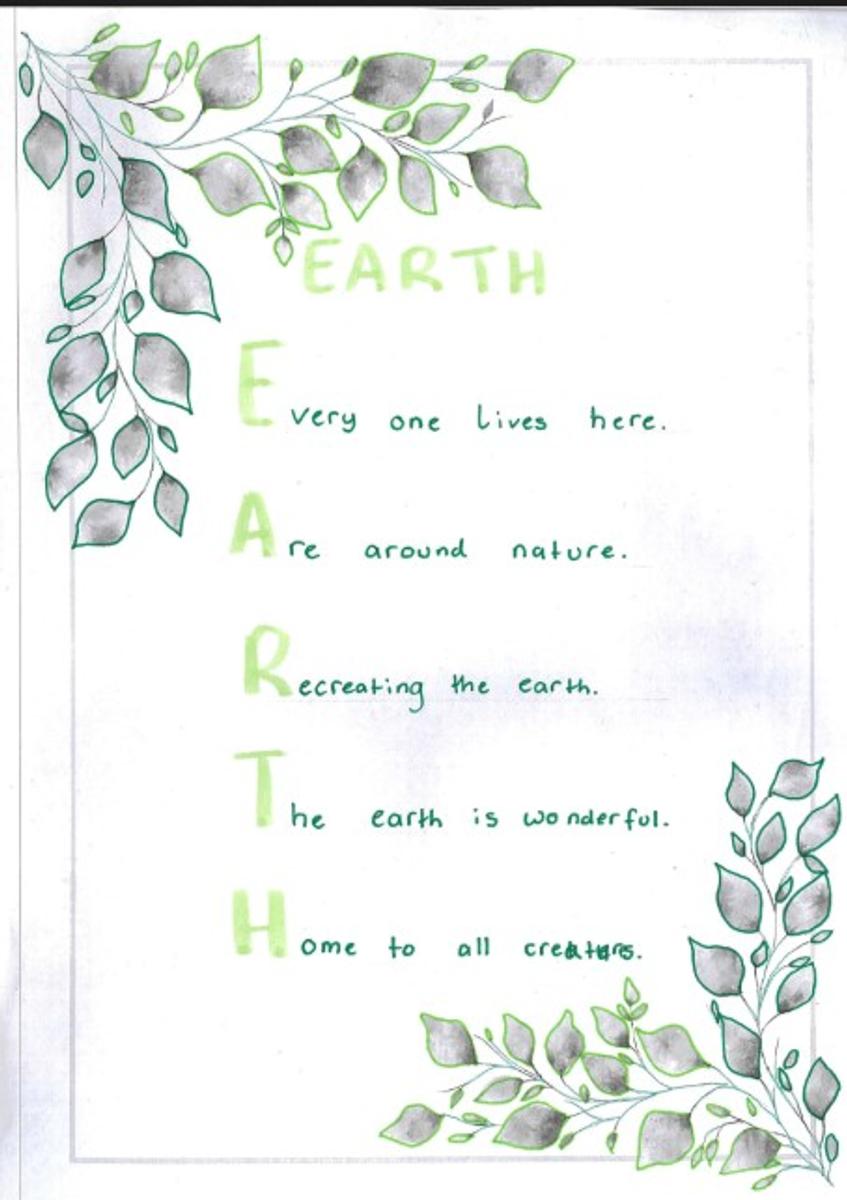 EARTH
Every one lives here.
Are around nature.
Recreating the earth.
The earth is wonderful.
Home to all creaturs.